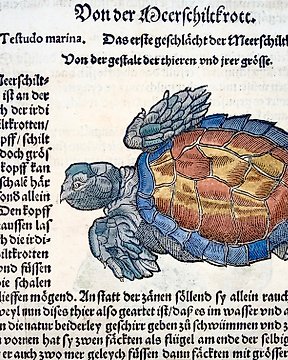 Von der Meerschiltkrott.
Testudo marina. Das erste geschlächt der Meerschiltk
Von der gestalt der thieren vnd jrer grösse.
Meerschilt-
ist an der
ch der irdi
iltkrotten/
pff/schilt
doch grös
kopff kan
schalē här
Sonst allein
Den kopff
aussen las
ch die irdi-
hiltkrotten
nd füssen
die schalen
liessen mögend. An statt der zänen söllend sy allein rauch
weyl nun dises thier also geartet ist/daß es im wasser vnd a
n die natur beiderley geschirr geben zů schwümmen vnd z
vornen hat sy zwen fäckten als flügel am ende der selbig
d auch zwo mer geleych füssen dann fäckten mit grossen